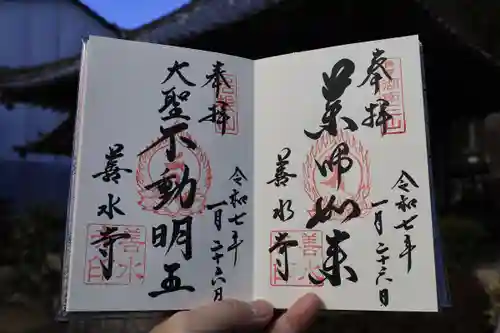 奉拝
薬師如来
善水寺
令和七年
一月二十六日
奉拝
大聖不動明王
善水寺
令和七年
一月二十六日
善水
寺印
善水
寺印